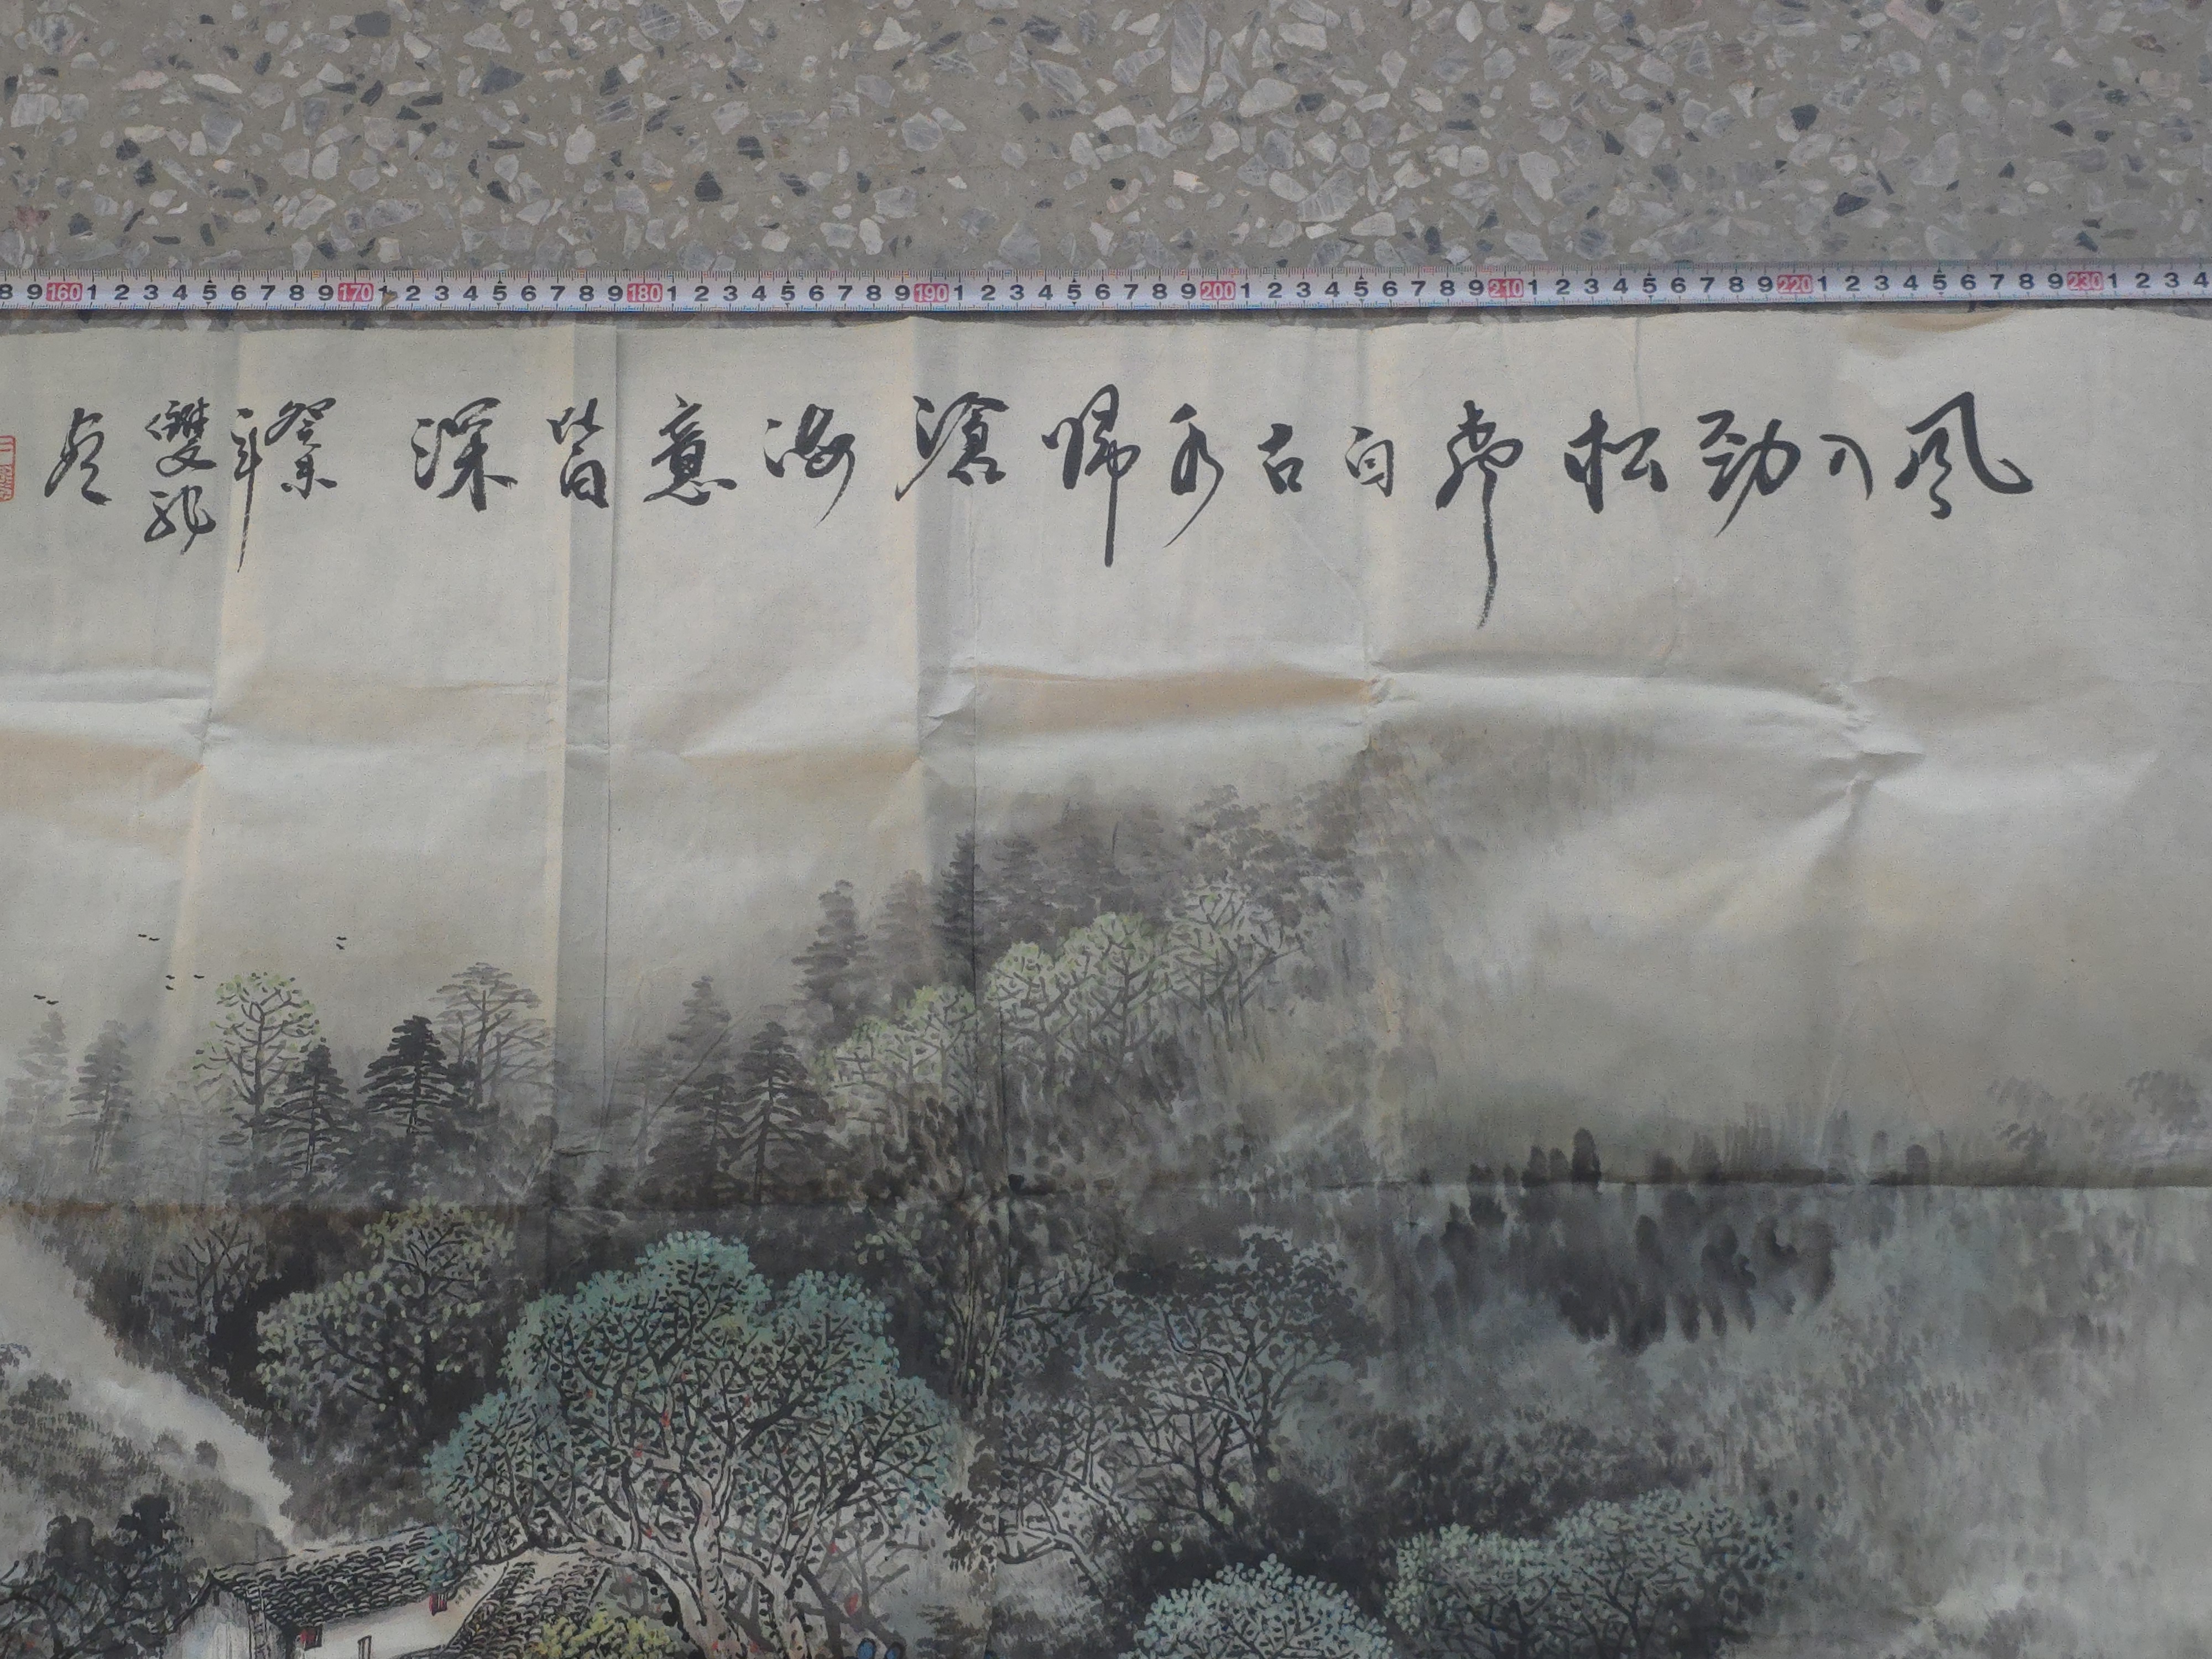 8 9 160 1 2 3 4 5 6 7 8 9 170 1 2 3 4 5 6 7 8 9 180 1 2 3 4 5 6 7 8 9 190 1 2 3 4 5 6 7 8 9 200 1 2 3 4 5 6 7 8 9 210 1 2 3 4 5 6 7 8 9 220 1 2 3 4 5 6 7 8 9 230 1 2 3 4
風入勁松聲自古水歸滄海意皆深
癸未
年
雙龍